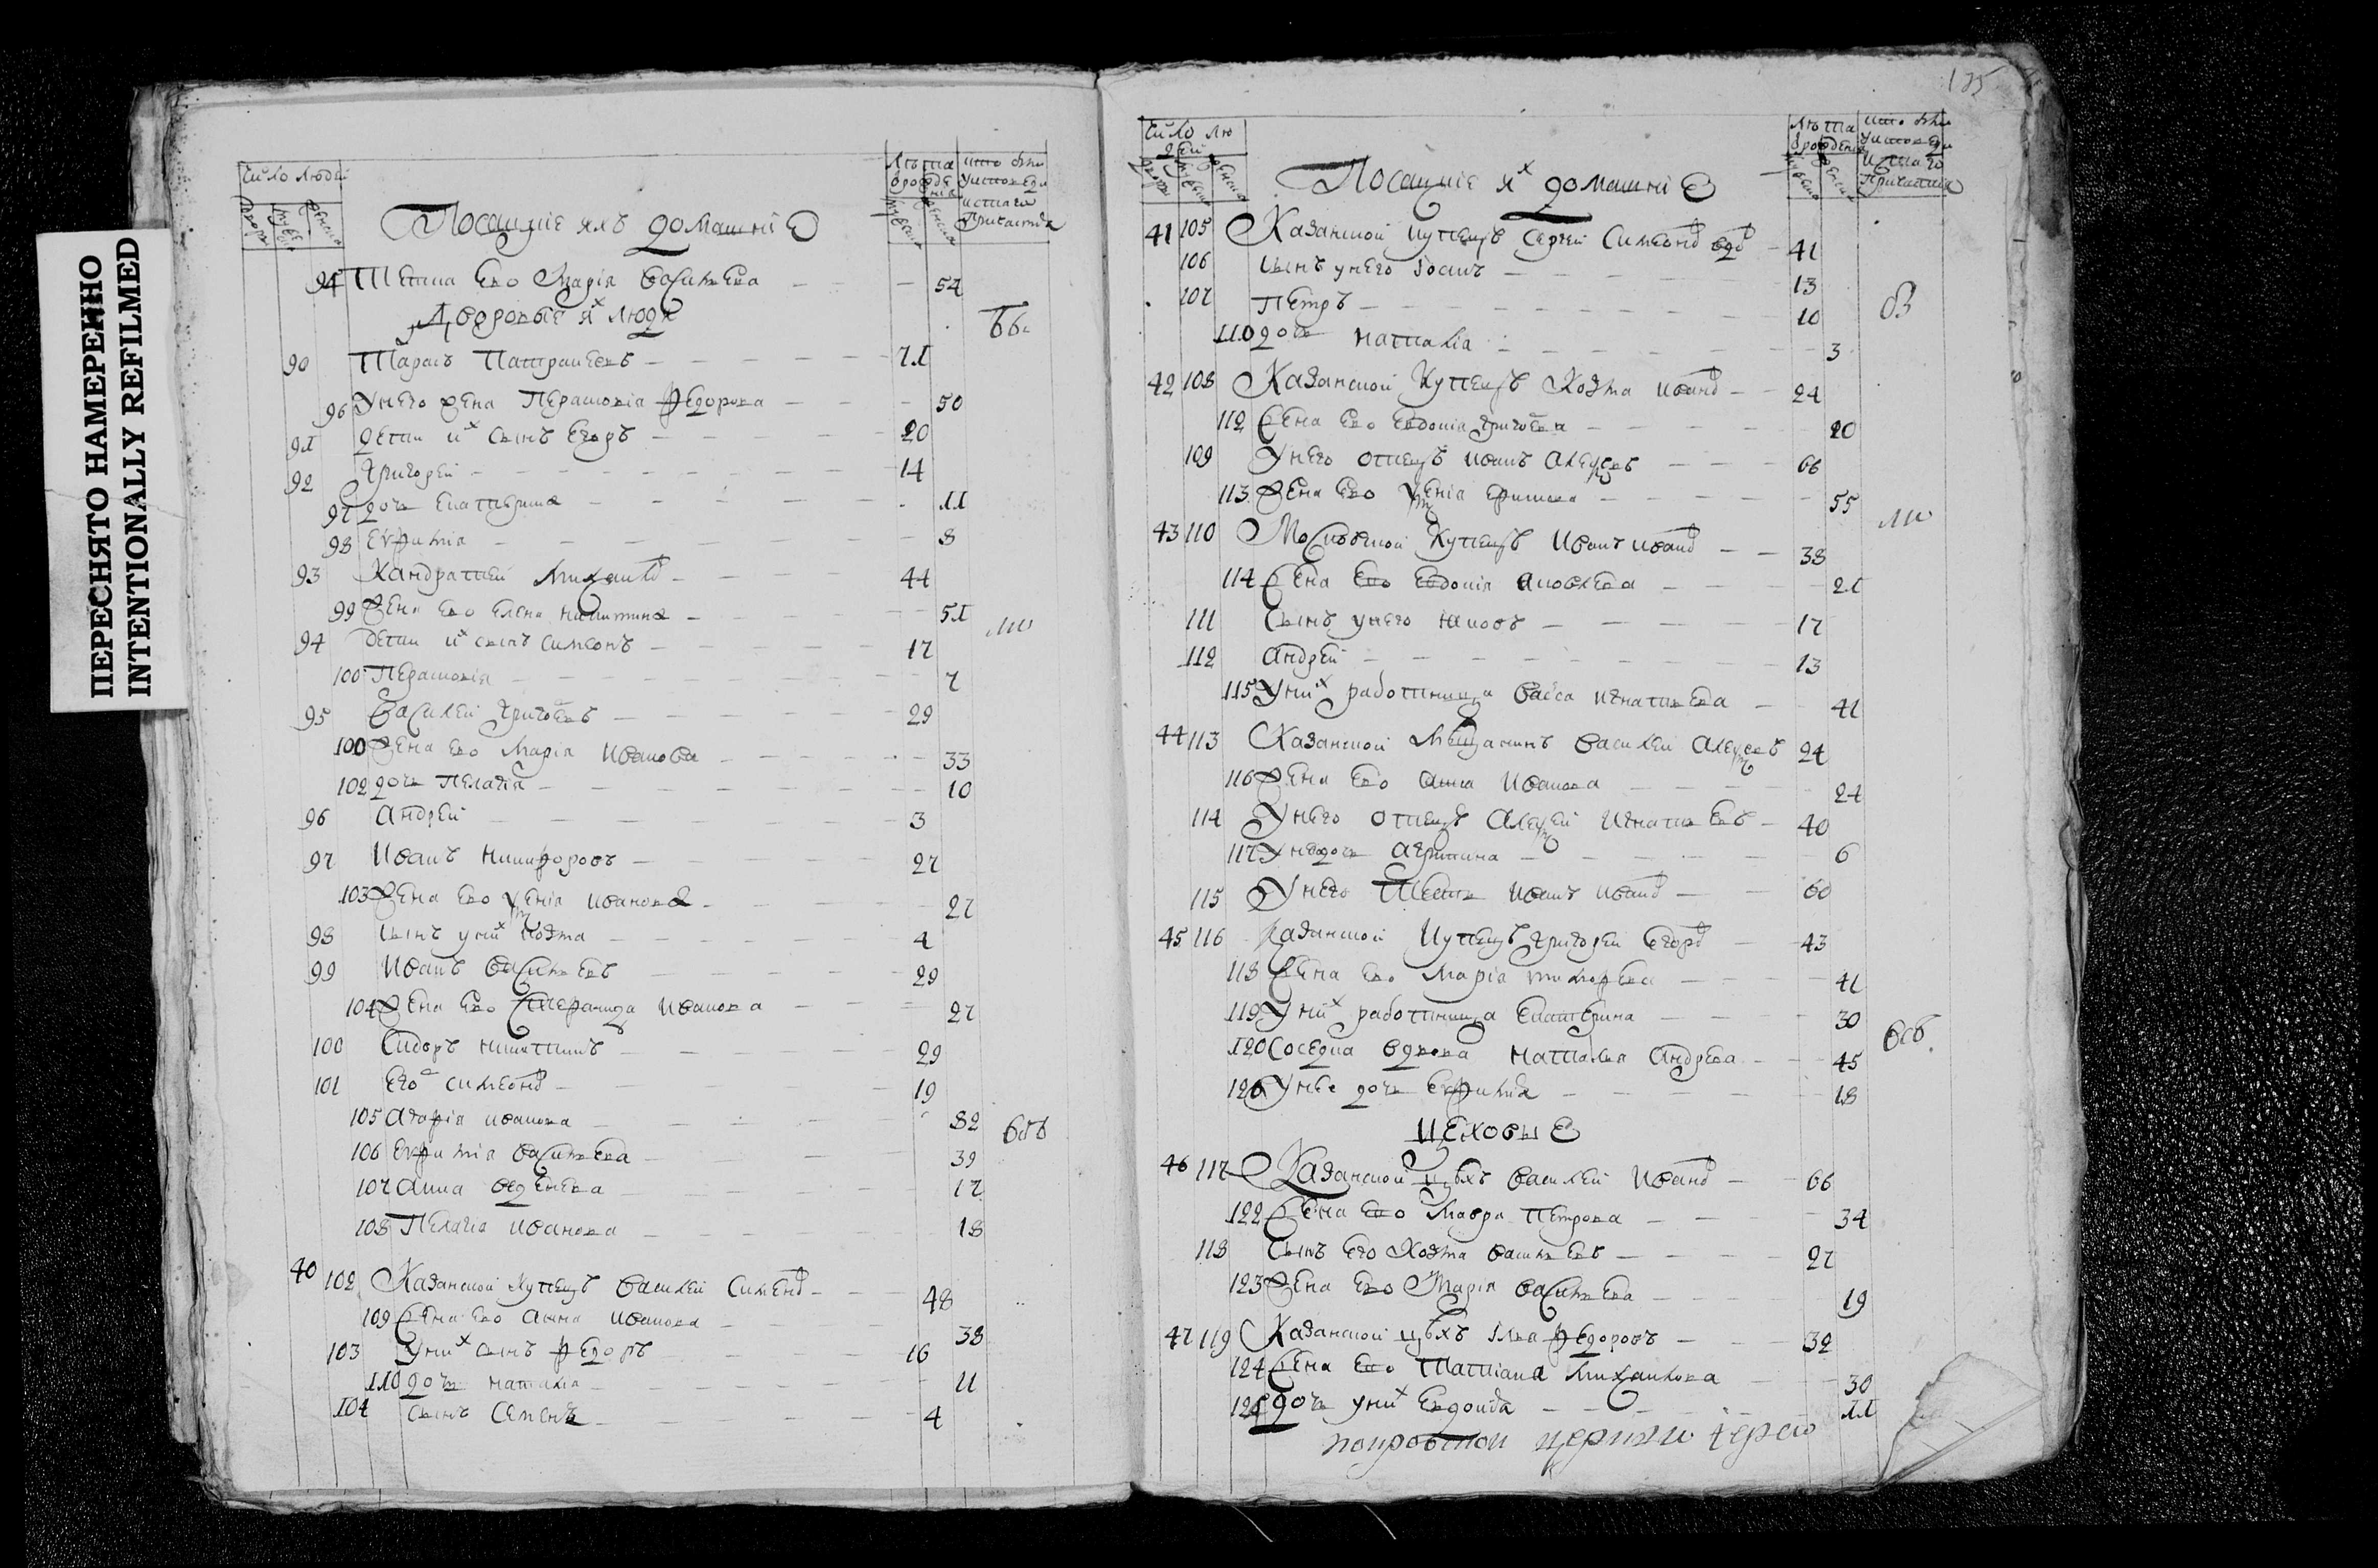 ПЕРЕСНЯТО НАМЕРЕННО
INTENTIONALLY REFILMED
Число людей
Посацкiе ихъ домашнiе
94 Теща ево Марiя Васильева 54
Дворовые их люди
90 Тарасъ Патракеевъ 71
96 У него жена Перасковiя Федорова 50
91 дети их сынъ Егоръ 20
92 Григорей 14
97 дочь Екатерина 11
98 Евфимiа 8
93 Кандратей Михаилов 44
99 жена ево Елена Никитина 51
94 дети их сынъ Симеонъ 17
100 Перасковiя 7
95 Василей Григоевъ 29
100 жена ево Марiя Иванова 33
102 дочь Пелагiя 10
96 Андрей 3
97 Иванъ Никифоровъ 27
103 жена ево Ѯенiя Иванова 27
98 сынъ у них Козма 4
99 Иванъ Васильевъ 29
104 жена ево Иванова 27
100 Сидоръ Никитинъ 29
101 Симеонов 19
105 Агафiя Иванова 82
106 Евфимiа Васильева 39
107 Анна 17
108 Пелагiя Иванова 18
40 102 Казанской купецъ Василей Сименов 48
109 жена ево Анна Иванова 38
103 У них сынъ Федоръ 16
110 дочь Наталiа 11
104 сынъ Семенъ 4
Число людей
Посацкiе их домашнiе
41 105 Казанской купецъ Сергей Симеонов вдов 41
106 сынъ у него Iоанъ 13
107 Петръ 10
110 дочь Наталiа 3
42 108 Казанской купецъ Козма Иванов 24
112 жена ево Евдокiа Григоева 20
109 У него отецъ Иванъ Алеѯеевъ 66
113 жена ево Ѯенiа 55
43 110 Московской купецъ Иванъ Иванов 38
114 жена ево Евдокiя Яковлева 21
111 Сынъ у него Яковъ 17
112 Андрей 13
115 У них работница Васса Игнатьева 41
44 113 Казанской мещанинъ Василей Алеѯеевъ 24
116 жена ево Анна Иванова 24
114 У него отецъ Алеѯей Игнатьевъ 40
117 дочь Агрипина 6
115 У него тесть Иванъ Иванов 60
45 116 Казанской купецъ Григорей Егоров 43
118 жена ево Марiа Тимофева 41
119 У них работница Екатерина 30
120 Соседка вдова Наталья Андрева 45
126 У нее дочь Евфимiа 18
Цеховые
46 117 Казанской цѣхъ Василей Иванов 66
122 жена ево Мавра Петрова 34
118 Сынъ его Козма Васильевъ 27
123 жена ево Марiя Васильева 19
47 119 Казанской цѣхъ Iлья Федоровъ 32
124 жена ево Татiана Михаилова 30
125 дочь у них Евдокiа 11
покровской церкви iерей